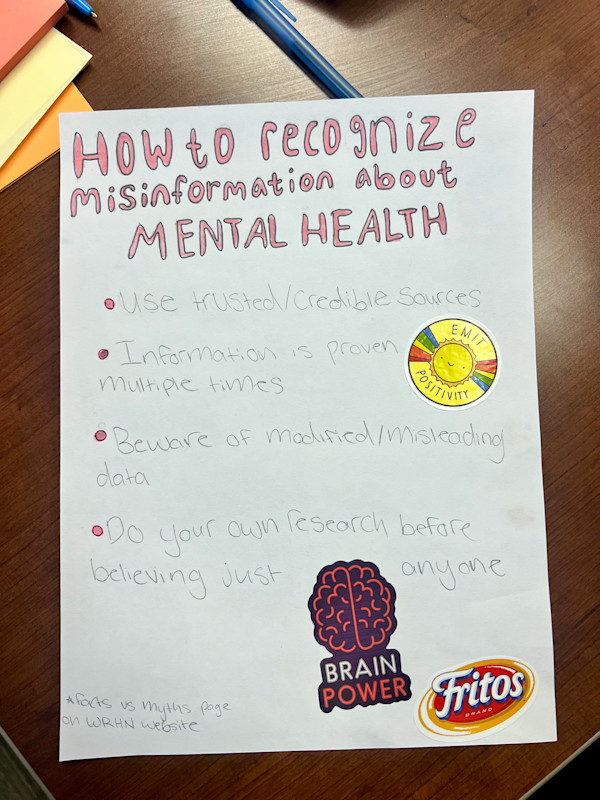 HOW to recognize
misinformation about
MENTAL HEALTH
• Use trusted/credible sources
• Information is proven
multiple times
EMIT
POSITIVITY
• Beware of modified/misleading
data
• Do your own research before
believing just anyone
BRAIN
POWER
Fritos
BRAND
*Facts vs myths page
on WRHN website